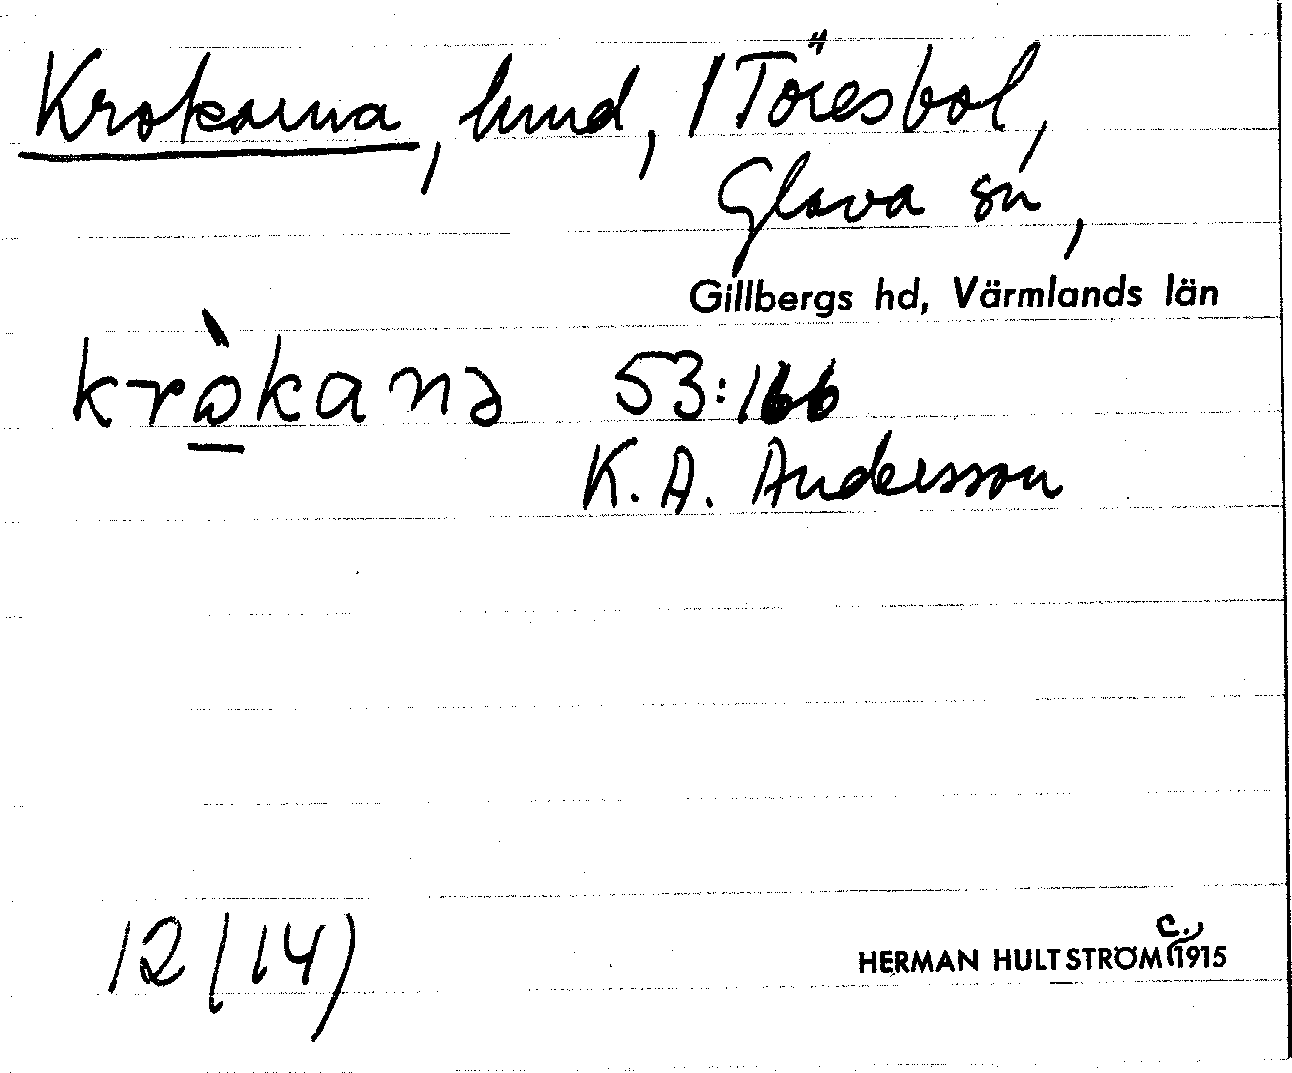 Krokarna, lund, 1 Töresbol,
Glava sn,
Gillbergs hd, Värmlands län
kròkanə 53:166
K. A. Andersson
12 (14)
HERMAN HULTSTRÖM c. 1915